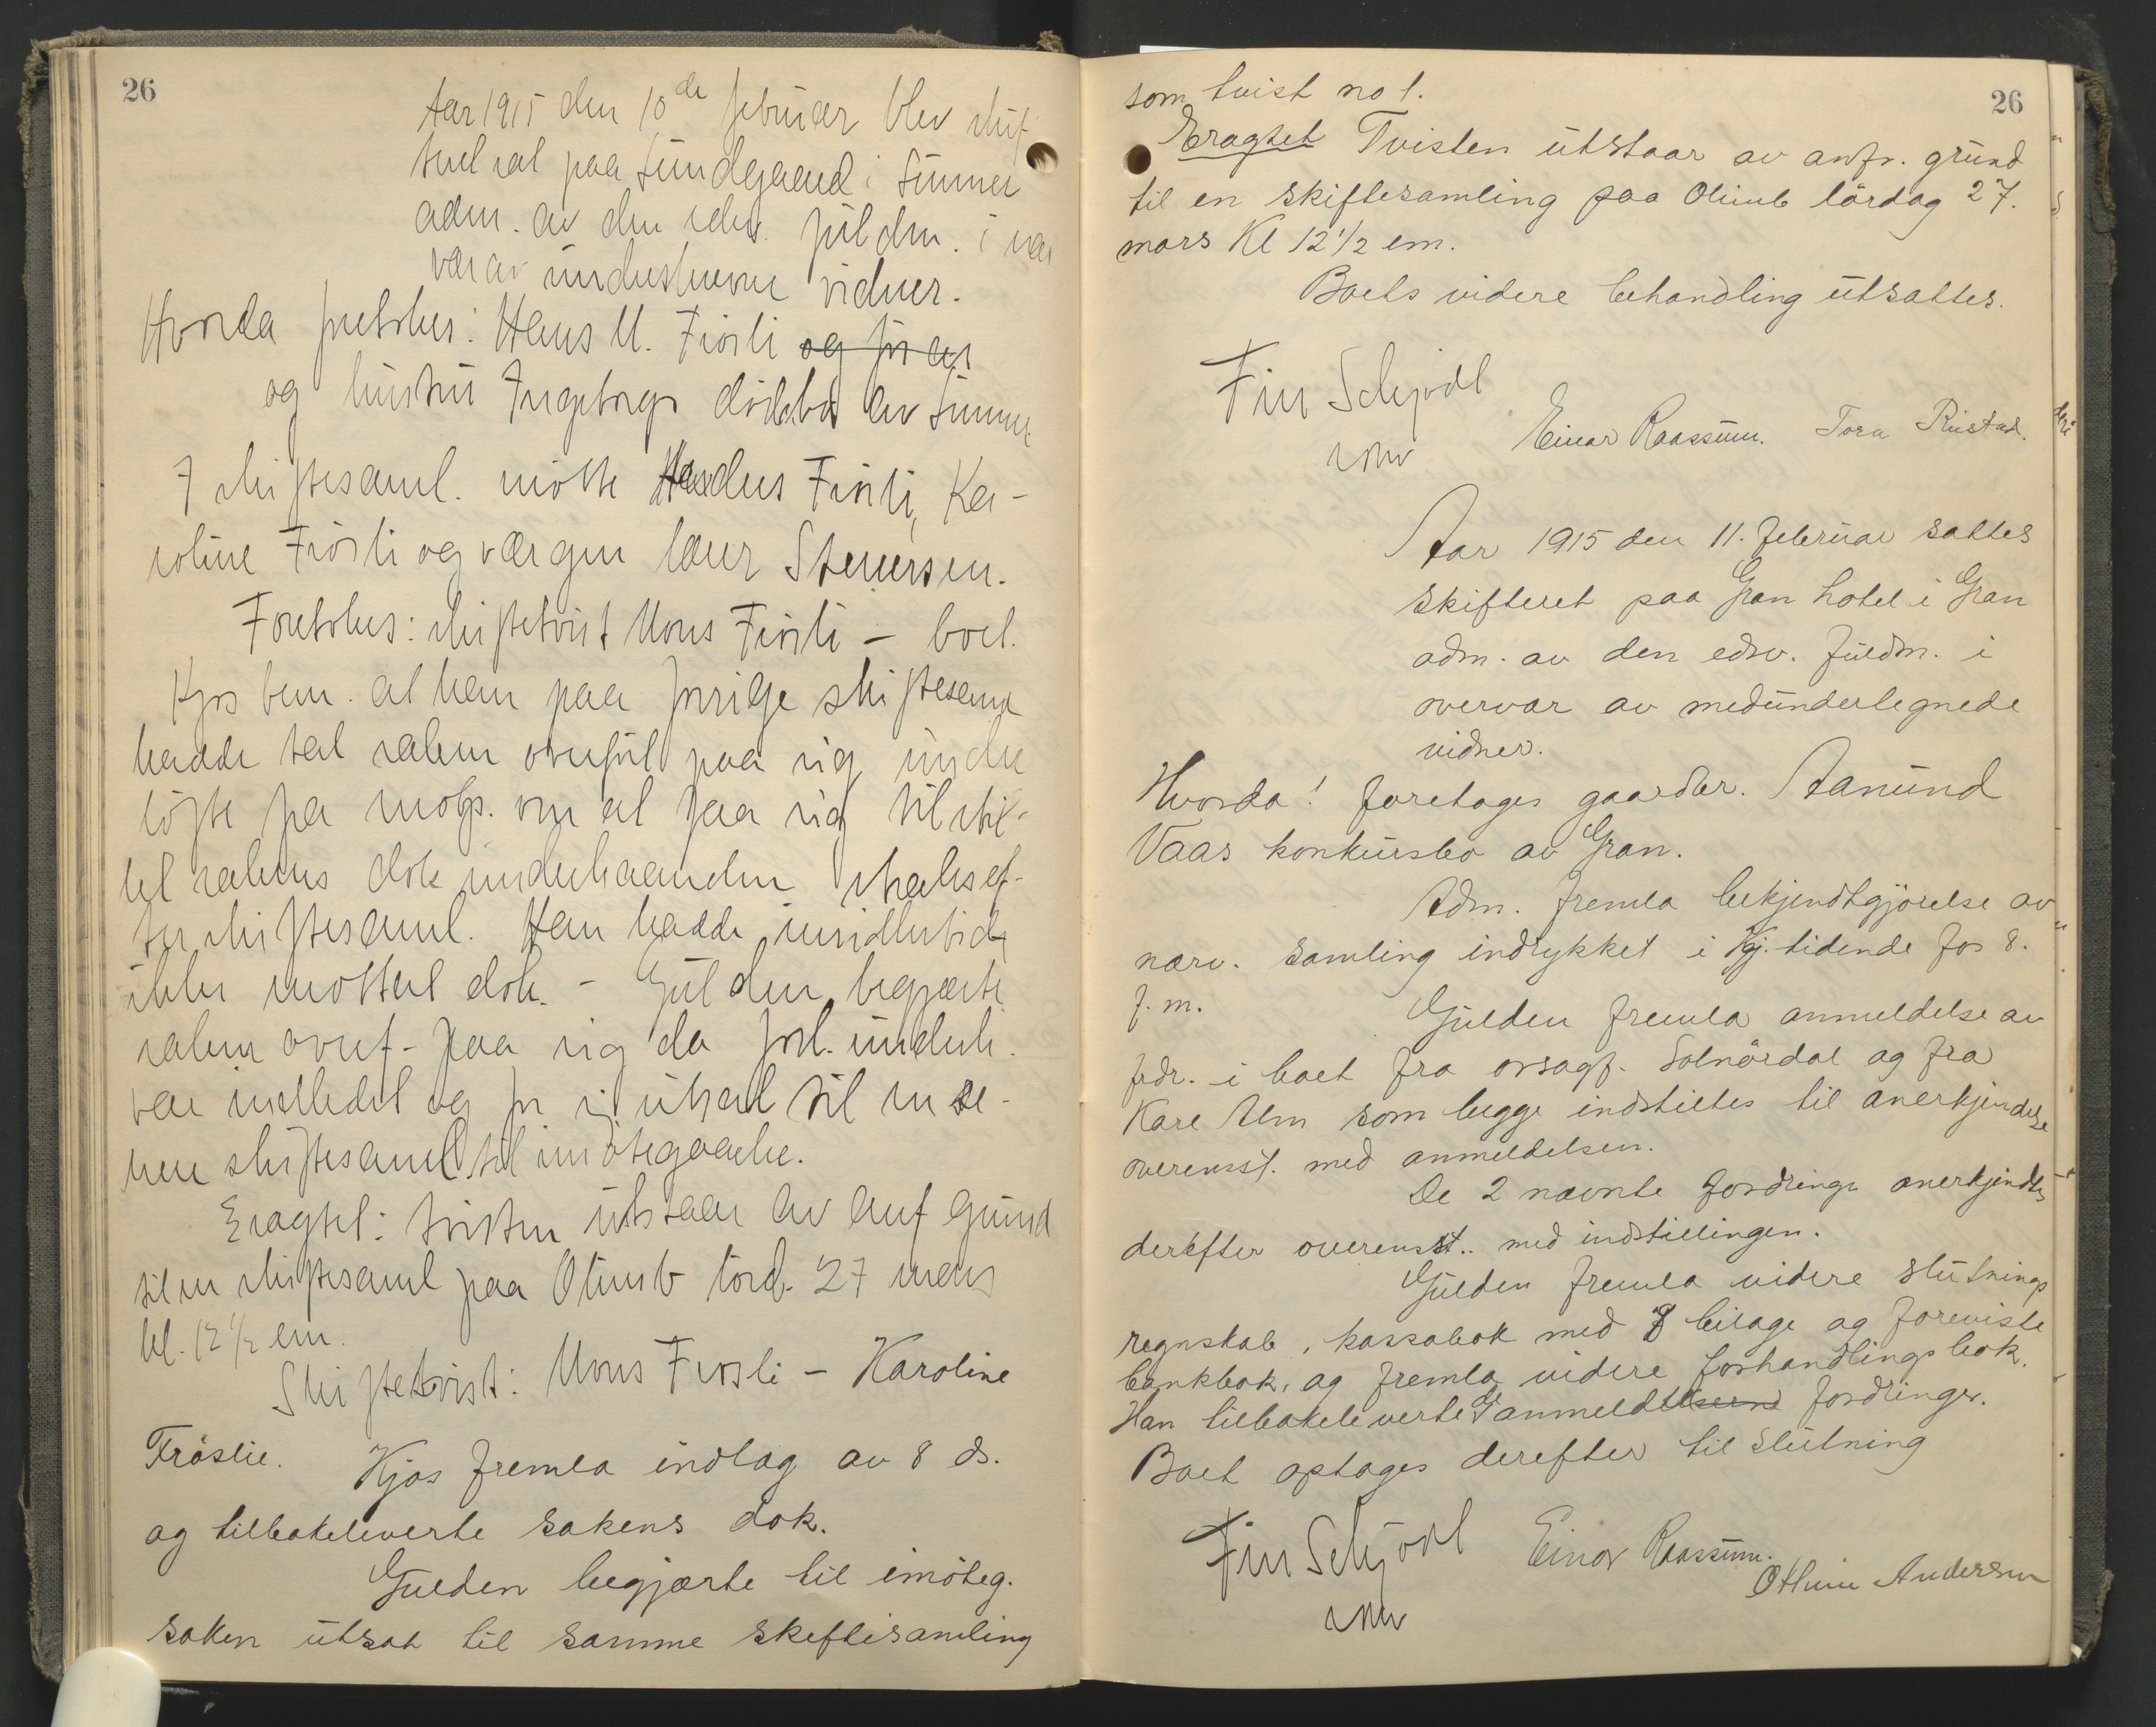 26
Aar 1915 den 10de februar blev skif-
teret sat paa Sundgaard i Lunner
adm. av den edsv. fuldm. i ner
vær av undertegnede vidner.
Hvorda foretokes: Hans M. Frösli og for av
og hustru Ingeborgs dödsbo av Lunner
I skiftesaml. mötte Anders Frösli, Ka-
roline Frösli og værgen lærer Steuersen.
Foretokes: skiftetvist Mons Frösli – boet.
Kjos bem. at han paa forrige skiftesaml
hadde tat saken overfört paa sig under
löfte fra motp. om at faa sig tilstil-
let sakens dok underhaanden straks ef-
ter skiftesaml. Han hadde imidlertid
ikke mottat dok. – Gulden begjærte
saken overf. paa sig da forl. underh.
var indledet og for öi utsat til en se-
nere skiftesaml til imötegaaelse.
Eragtet: tvisten utstaar av anf grund
til en skiftesaml paa Olimb lörd. 27 mars
kl. 12 1/2 em.
Skiftetvist: Mons Frösli – Karoline
Fröslie. Kjos fremla indlæg av 8 ds.
og tilbakeleverte sakens dok.
Gulden begjærte til imöteg.
saken utsat til samme skeftesamling
26
som tvist no 1.
Eragtet Tvisten utstaar av anfr. grund
til en skiftesamling paa Olimb lördag 27.
mars Kl 12 1/2 em.
Boets videre behandling utsattes.
Fin Schjödt
Einar Raassum. Tora Rustad.
Aar 1915 den 11. februar sattes
skifteret paa Gran hotel i Gran
adm. av den edsv. fuldm. i
overvær av medundertegnede
vidner.
Hvorda! foretages gaardbr. Aamund
Vaas konkursbo av Gran.
Adm. fremla bekjendtgjörelse av
nærv. samling indrykket i Kj. tidende for 8.
f. m.
Gulden fremla anmeldelse av
fodr. i boet fra orsagf. Solnördal og fra
Kare Alm som begge indstilles til anerkjendelse
overensst. med anmeldelsen.
De 2 nævnte fordringer anerkjendtes
derefter overensst.. med indstillingen.
Gulden fremla videre slutnings
regnskab, kassabok med 8 bilage og foreviste
bankbok, og fremla videre forhandlingsbok.
Han tilbakeleverte de anmeldtelserne fordringer.
Boet optages derefter til slutning
Fin Schjödt Einar Raassum.
Othine Andersen